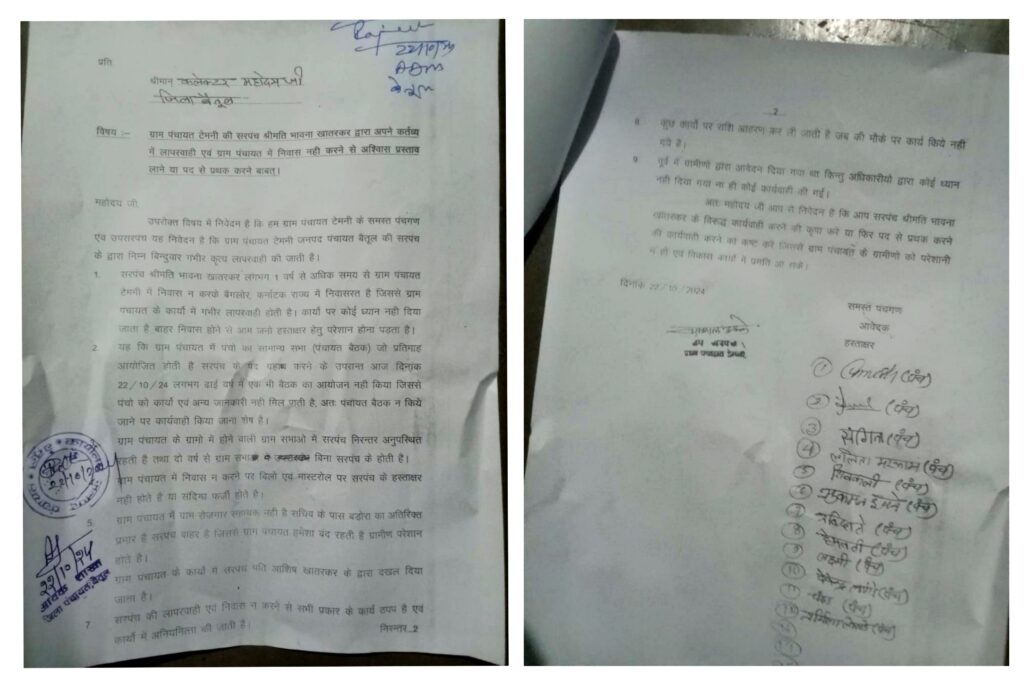 22/10/24
ADM
बैतूल
प्रति,
श्रीमान कलेक्टर महोदय जी
जिला बैतूल
विषय :— ग्राम पंचायत टेमनी की सरपंच श्रीमति भावना खातरकर द्वारा अपने कर्तव्य
में लापरवाही एवं ग्राम पंचायत में निवास नही करने से अश्विास प्रस्ताव
लाने या पद से प्रथक करने बाबत्।
महोदय जी,
उपरोक्त विषय में निवेदन है कि हम ग्राम पंचायत टेमनी के समस्त पंचगण
एवं उपसरपंच यह निवेदन है कि ग्राम पंचायत टेमनी जनपद पंचायत बैतूल की सरपंच
के द्वारा निम्न बिन्दुवार गभीर कृत्य लापरवाही की जाती है।
1. सरपंच श्रीमति भावना खातरकर लगभग 1 वर्ष से अधिक समय से ग्राम पंचायत
टेमनी में निवास न करके बैंगलोर, कर्नाटक राज्य में निवासरत है जिससे ग्राम
पंचायत के कार्यो में गभीर लापरवाही होती है। कार्यो पर कोई ध्यान नही दिया
जाता है बाहर निवास होने से आम जनो हस्ताक्षर हेतु परेशान होना पड़ता है।
2. यह कि ग्राम पंचायत में पंचो का सामान्य सभा (पंचायत बैठक) जो प्रतिमाह
आयोजित होती है सरपंच के पद ग्रहण करने के उपरान्त आज दिनांक
22/10/24 लगभग ढाई वर्ष में एक भी बैठक का आयोजन नही किया जिससे
पंचो को कार्यो एवं अन्य जानकारी नही मिल पाती है, अतः पंचायत बैठक न किये
जाने पर कार्यवाही किया जाना शेष है।
ग्राम पंचायत के ग्रामो में होने वाली ग्राम सभाओ में सरपंच निरन्तर अनुपस्थित
रहती है तथा दो वर्ष से ग्राम सभा बिना सरपंच के होती है।
ग्राम पंचायत में निवास न करने पर बिलो एवं मास्टरोल पर सरपंच के हस्ताक्षर
नही होते है या संदिग्ध फर्जी होते है।
5. ग्राम पंचायत में ग्राम रोजगार सहायक नही है सचिव के पास बडोरा का अतिरिक्त
प्रभार है सरपंच बाहर है जिससे ग्राम पंचायत हमेशा बंद रहती है ग्रामीण परेशान
होते है।
ग्राम पंचायत के कार्यो में सरपंच पति आशिष खातरकर के द्वारा दखल दिया
जाता है।
7. सरपंच की लापरवाही एवं निवास न करने से सभी प्रकार के कार्य ठपप है एवं
कार्यो में अनियमितता की जाती है।
निरन्तर..2
22/10/24
22/10/24
आवक शाखा
जिला पंचायत, बैतूल
..2..
8. कुछ कार्यो पर राशि आहरण कर ली जाती है जब की मौके पर कार्य किये नही
गये है।
9. पूर्व में ग्रामीणो द्वारा आवेदन दिया गया था किन्तु अधिकारीयो द्वारा कोई ध्यान
नही दिया गया ना ही कोई कार्यवाही की गई।
अतः महोदय जी आप से निवेदन है कि आप सरपंच श्रीमति भावना
खातरकर के विरुद्ध कार्यवाही करने की कृपा करे या फिर पद से प्रथक करने
की कार्यवाही करने का कष्ट करे जिससे ग्राम पंचायत के ग्रामीणो को परेशानी
न हो एवं विकास कार्यो में प्रगति आ सके।
दिनांक 22/10/2024
समस्त पंचगण
आवेदक
हस्ताक्षर
उप सरपंच
ग्राम पंचायत टेमनी
① (पंच)
② (पंच)
③ संगिता (पंच)
④ ललिता मरकाम (पंच)
⑤ शिवकली (पंच)
⑥ (पंच)
⑦ (पंच)
⑧ हेमलती (पंच)
⑨ लक्ष्मी (पंच)
⑩ (पंच)
⑪ (पंच)
⑫ (पंच)